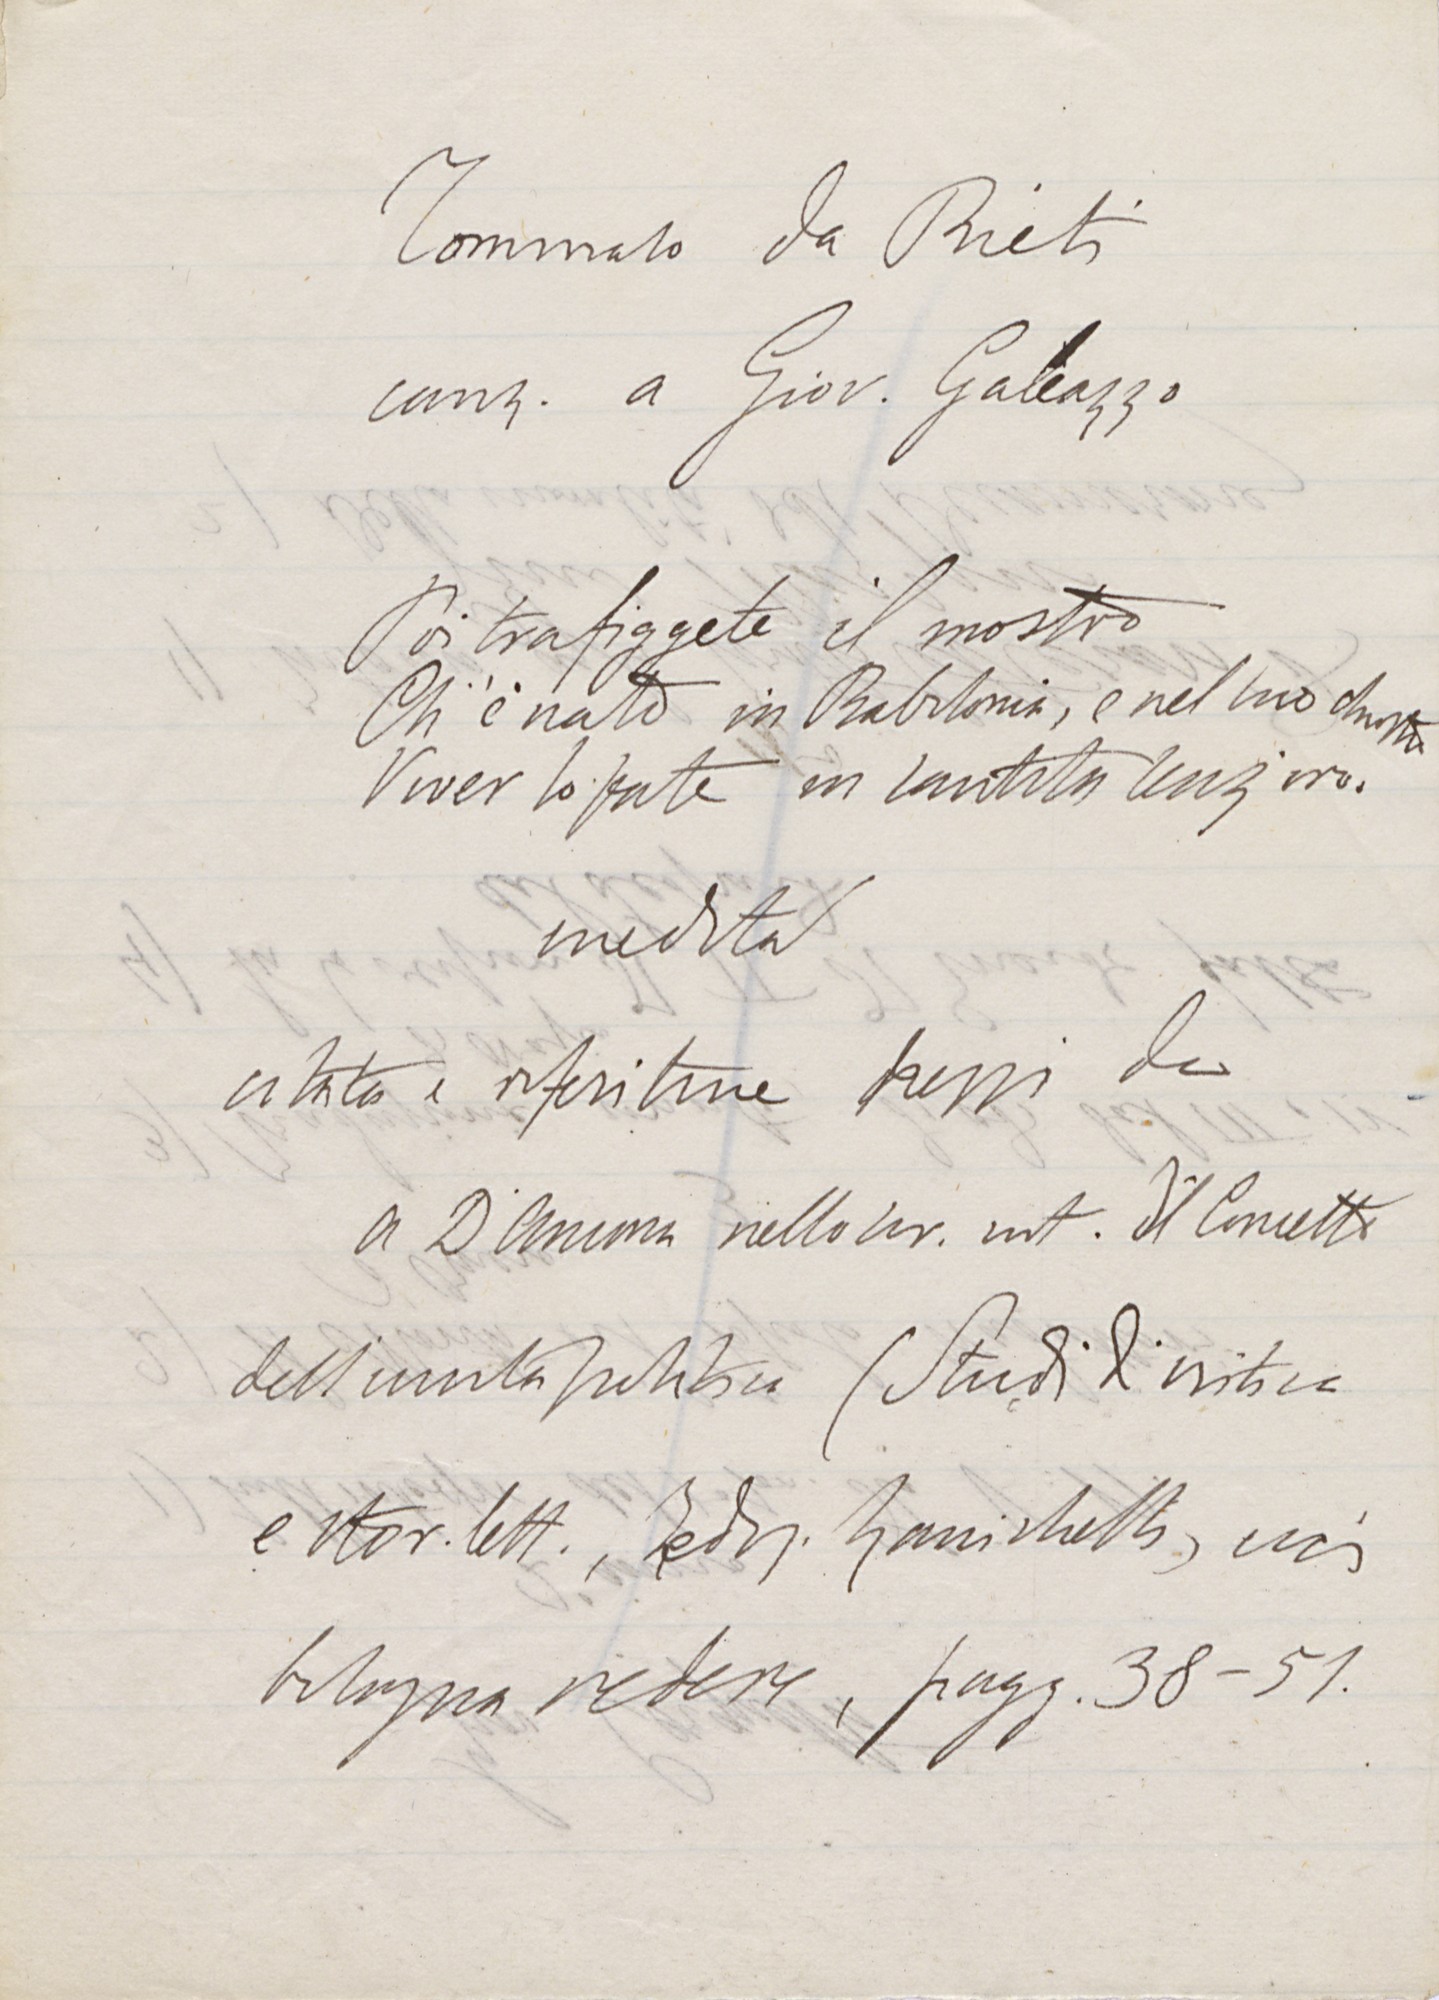 Tommaso da Rieti
canz. a Giov. Galeazzo
Poi trafiggete il mostro
Ch'è nato in Babilonia, e nel suo chiostro
Viver lo fate in santità senz'oro.
inedita
citata e riferitine pezzi da
A D'Ancona nello scr. int. Il Concetto
dell'unità politica (Studi di critica
e stor. lett., Zanichelli,
bologna vedere, pagg. 38-51.